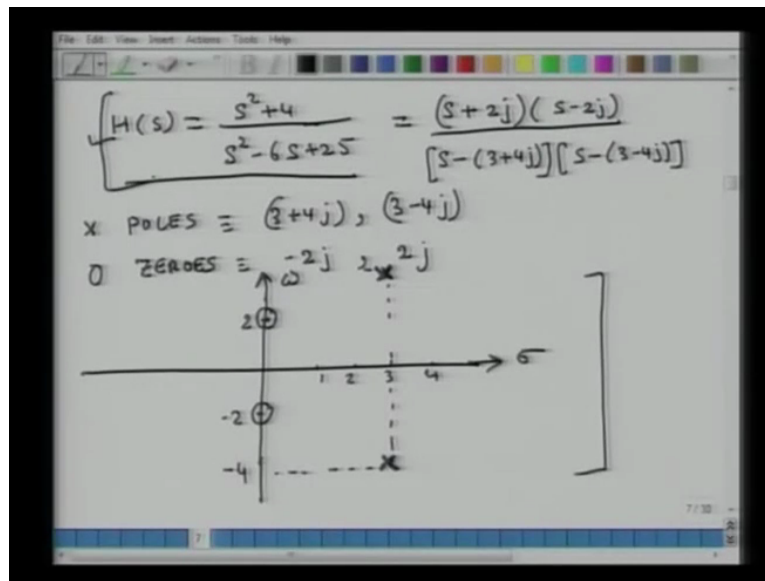 File Edit View Insert Actions Tools Help
H(s) = s²+4 / s²-6s+25 = (s+2j)(s-2j) / [s-(3+4j)][s-(3-4j)]
x POLES ≡ (3+4j), (3-4j)
0 ZEROES ≡ -2j, 2j
ω
2
1 2 3 4 σ
-2
-4
7/30
7